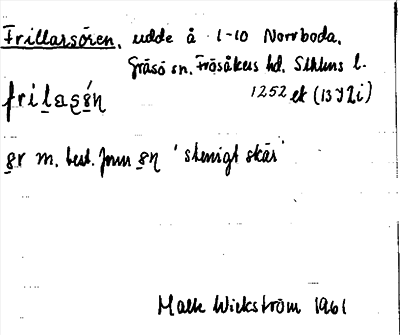 Frillarsören, udde å 1-10 Norrboda,
Gräsö sn, Frösåkers hd, Sthlms l.
1252 ek (13 I 2 i)
fri l a s ö́ n
ör m. best. form ön 'stenigt skär'
Wickström 1961